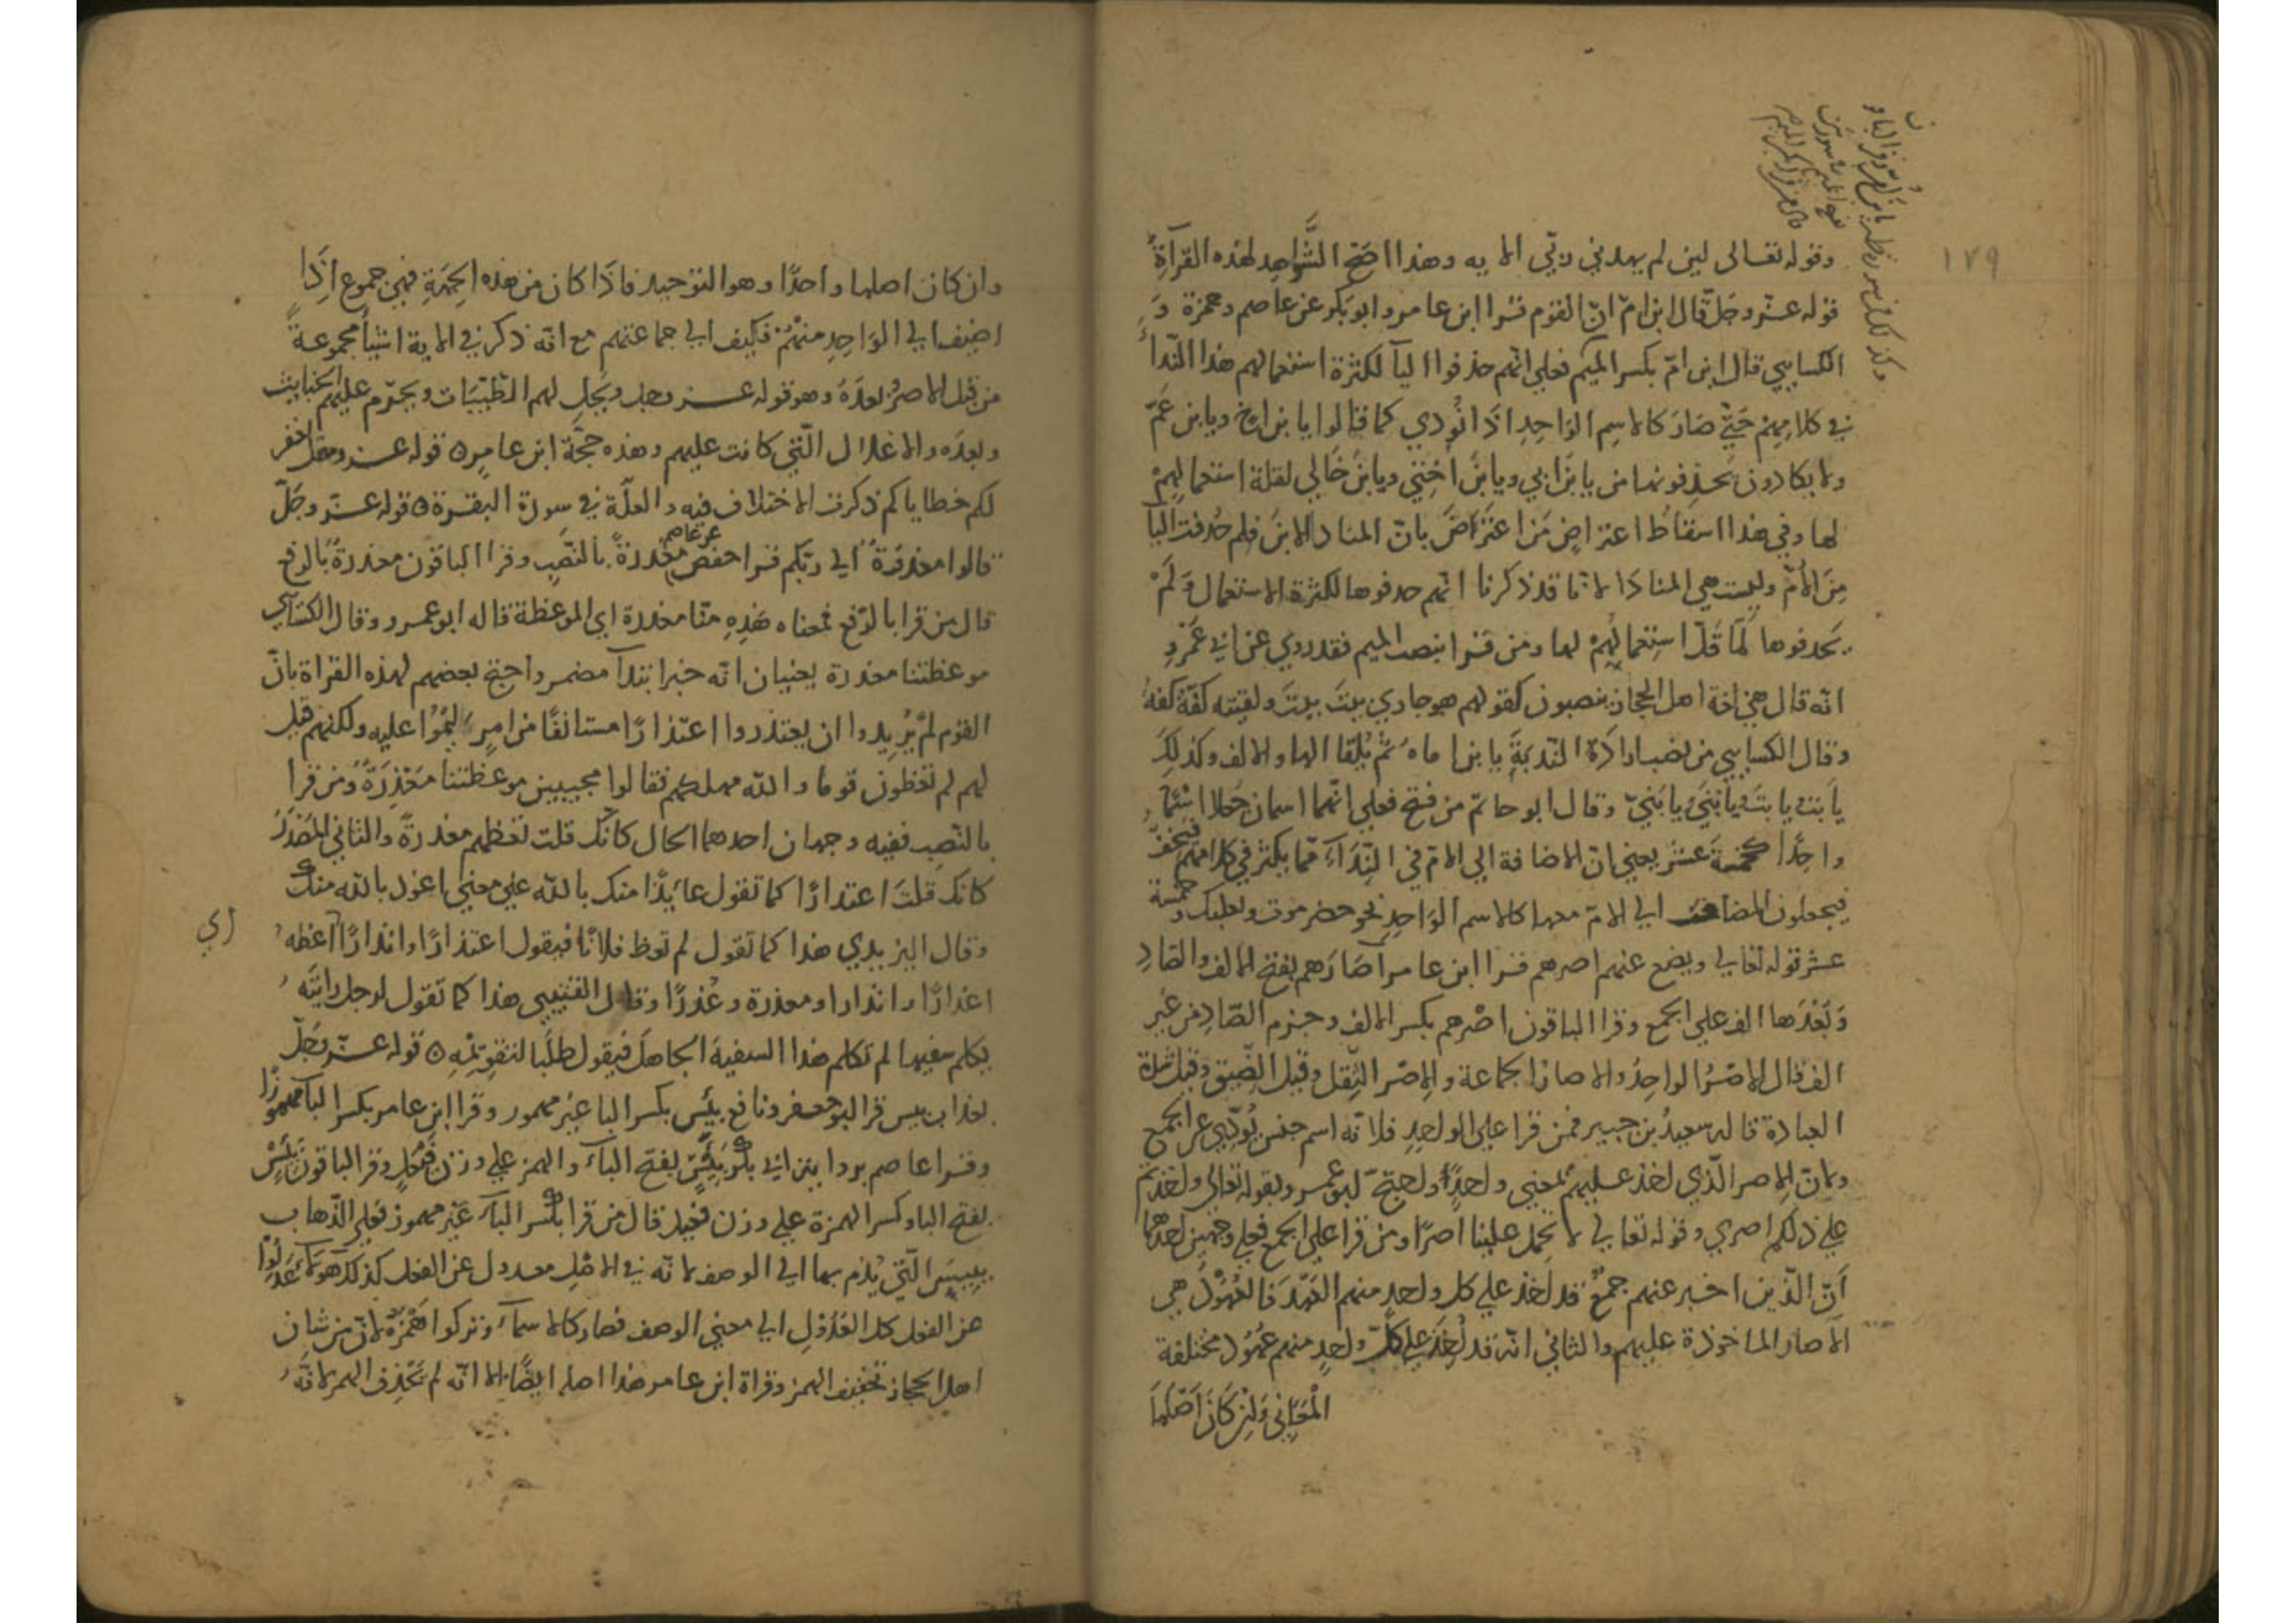 ١٧٩
وقوله تعالى لين لم يهدني ربّي الايه وهذا اصَحّ الشّواهِد لهٰذه القرآءَةِ
قوله عــزّوجَلّ قال ابن امّ انّ القوم قــرا ابن عامر وابو بَكر عن عاصم وحمزة وَ
الكسايي قال ابن امّ بكسر الميم فعلى انّهم حذفوا اليآ لكثرة استعمالهم هذا النّدآءَ
في كلامِهِم حَتّى صَارَ كالاسمِ الوَاحِدِ اذَا نُودي كما قالوا يا بن اخ ويا بن عَمّ
ولا يكادون يَحذِفونها من يا بنَ ابي ويا بنَ اُختي ويا بنَ خَالي لقلة استعمالِهِمْ
لها وفي هذا اسقاط اعتراضِ مَن اعتَرَاضَ بانّ المنادا الابنَ فلم حُدفت اليآ
مِنَ الاُمّ وليست هي المنادَا لانّا قد ذكرنا انّهم حدفوها لكثرة الاستعمال وَلَمْ
يَحدفوها لَمّا قَلّ استِعمَالُهِمْ لها ومَن قــرا بنصب الميم فقد روي عن ابي عَمْروٍ
انّه قال هي لغة اهل الحجاز ينصبون كقولهم هو جاري بيتَ بيتَ ولقيته كفّةَ كفّةَ
وقال الكسايي من نصب ارادَةَ النّدبَةِ يا بن اماهُ ثمّ يُلقا الها والالف وكذلِكَ
يا بتِ يا بتَ ويا بُنَيِّ يا بُنَيَّ وقال ابو حاتم من فتح فعلى انّهما اسمان جُعلا اسمًا
واحِدًا كخمسَةَ عشرَ يعني انّ الاضافة الى الامّ في النِّدَآءَ ممّا يكثر في كلامهم فيخفّ
فيجعلون المضاف الى الامّ معها كالاسم الوَاحِدِ نحو حضرموت وبعلبك وخمسة
عشر قوله تعالى ويضع عنهم اصرهم قــرا ابن عامر آصَارَهم بفتح الالف والصَادِ
وَبَعْدَها الف على الجمع وقرا الباقون اصْرهم بكسر الالف وجزم الصّادِ من غير
الف قال الاصْرُ الواحِدُ والاصار الجماعة والاِصْر الثِّقل وقيل الضّيق وقيل شدّة
العبادة قاله سعيدُ بن جبير فمن قرا على الواحِدِ فلانّه اسم جنس يُودّي عن الجمع
ولانّ الاصر الّذي اخذ عــليهم لمعنى واحدٍ واحتجّ ابو عمرو بقوله تعالى واخذتم
على ذلكم اصري وقوله تعالى لا تحمل علينا اصرًا ومن قرا على الجمع فعلى وجهين احدهما
اَنّ الّذين اخبر عنهم جمعٌ قد اخذ على كل واحدٍ منهم العَهْدَ فالعُهُوْدُ هي
الآصار الماخوذة عليهم والثاني انّه قد اُخِذَ على كلّ واحِدٍ منهم عُهُود مختلفة
الْمَعَاني وَاِنْ كَانَ اَصْلهَا
وان كان اصلها واحدًا وهو التوحيد فاذَا كان من هٰذه الجِهَةِ فهي جموع اذَا
اضيف الى الوَاحِدِ منهُمْ فكيف الى جماعتهم مع انّه ذكر في الاية اشيآ مجموعةً
من قبل الاصرُ بعدَهُ وهو قوله عــز وجل ويُحِل لهم الطّيّبَات ويحرّم عليهم الخبايث
وبعدَه والاغلال الّتي كانت عليهم وهذه حجّة ابن عامرٍ ه قوله عــزّ وجلّ نغفر
لكم خطاياكم ذكرت الاختلاف فيه والعلّة في سورة البقــرة ه قوله عــزّ وجَلّ
قالوا معذرَةً الى ربّكم قــرا حفص عن عاصم معذرةً بالنّصِب وقرا الباقون معذرةٌ بالرفع
قال من قرا بالرّفع فمعناه هٰذِهِ منّا معذرة اي الموعظة قاله ابو عمــرو وقال الكسَآي
موعظتنا معذرة يعنيان انّه خبر ابتدآ مضمر واحتجّ بعضهم لهذه القراة بانّ
القوم لمْ يُرِيدوا ان يعتذروا اعتذارًا مستانفًا من امرٍ لِيْمُوا عليه ولكنهم قيل
لهم لم تعظون قوما والله مهلكهم فقالوا مجيبين موعظتنا مَعْذِرَةٌ ومن قرا
بالنّصِب ففيه وجهان احدهما الحال كانّك قلت نعظهم معذرةً والثاني المَصْدَرُ
كانّك قلتَ اعتدارًا كما تقول عايِذًا منك بالله على معنى اعوذ بالله منك
وقال اليزيدي هذا كما تقول لم توظ فلانًا فيقول اعتذارًا وانذارًا اعظه
اي
اعذارًا وانذارا ومعذرة وعُذرًا وقال القتيبي هذا كما تقول لرجل رايتَه
يكلم سفيها لم تكلم هذا السفيهَ الجاهلَ فيقول طلَبًا لتقوِيمِهِ ه قوله عــزّ وَجَلّ
بعذاب بيس قرا ابو جعفر ونافع بيْسٍ بكسر البا غير مهموز وقرا ابن عامر بكسر البآ مهموزًا
وقــرا عاصم بروايتن ابي بكر بَيْئَسٍ بفتح البآء والهمز على وزن فَيْعَلٍ وقرا الباقون بَئِيْسٍ
بفتح البا وكسر الهمزة على وزن فعيل قال من قرا بكسر البآء غيْر مهموز فعلى الذّهاب
بِبِيسَ الّتي يُذم بها الى الوصف لانّه في الاصْلِ معدول عن الفعل كذلك هو كما عَدَلُوا
عن الفعل كل العُدُولِ الى معنى الوصف فصار كالاسمآء وتركوا هَمْزَهُ لانّ من شان
اهل الحجاز تخفيف الهمز وقراة ابن عامر هٰذا اصله ايضًا الا انّه لم يَحْذِف الهمز لانّه